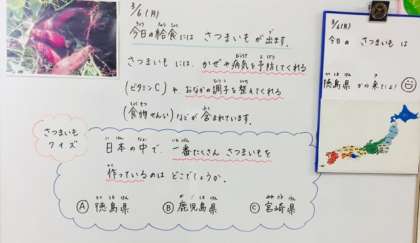 3/6(月)
今日の給食には さつまいもが 出ます。
さつまいもには、かぜや病気を予防してくれる
(ビタミンC)や おなかの調子を整えてくれる
(食物せんい)などが 含まれています。
さつまいも
クイズ
日本の中で、一番たくさん さつまいもを
作っているのは どこでしょうか。
Ⓐ 徳島県 Ⓑ 鹿児島県 Ⓒ 宮崎県
3/6(月)
今日の さつまいも は
徳島県 から来たよ!